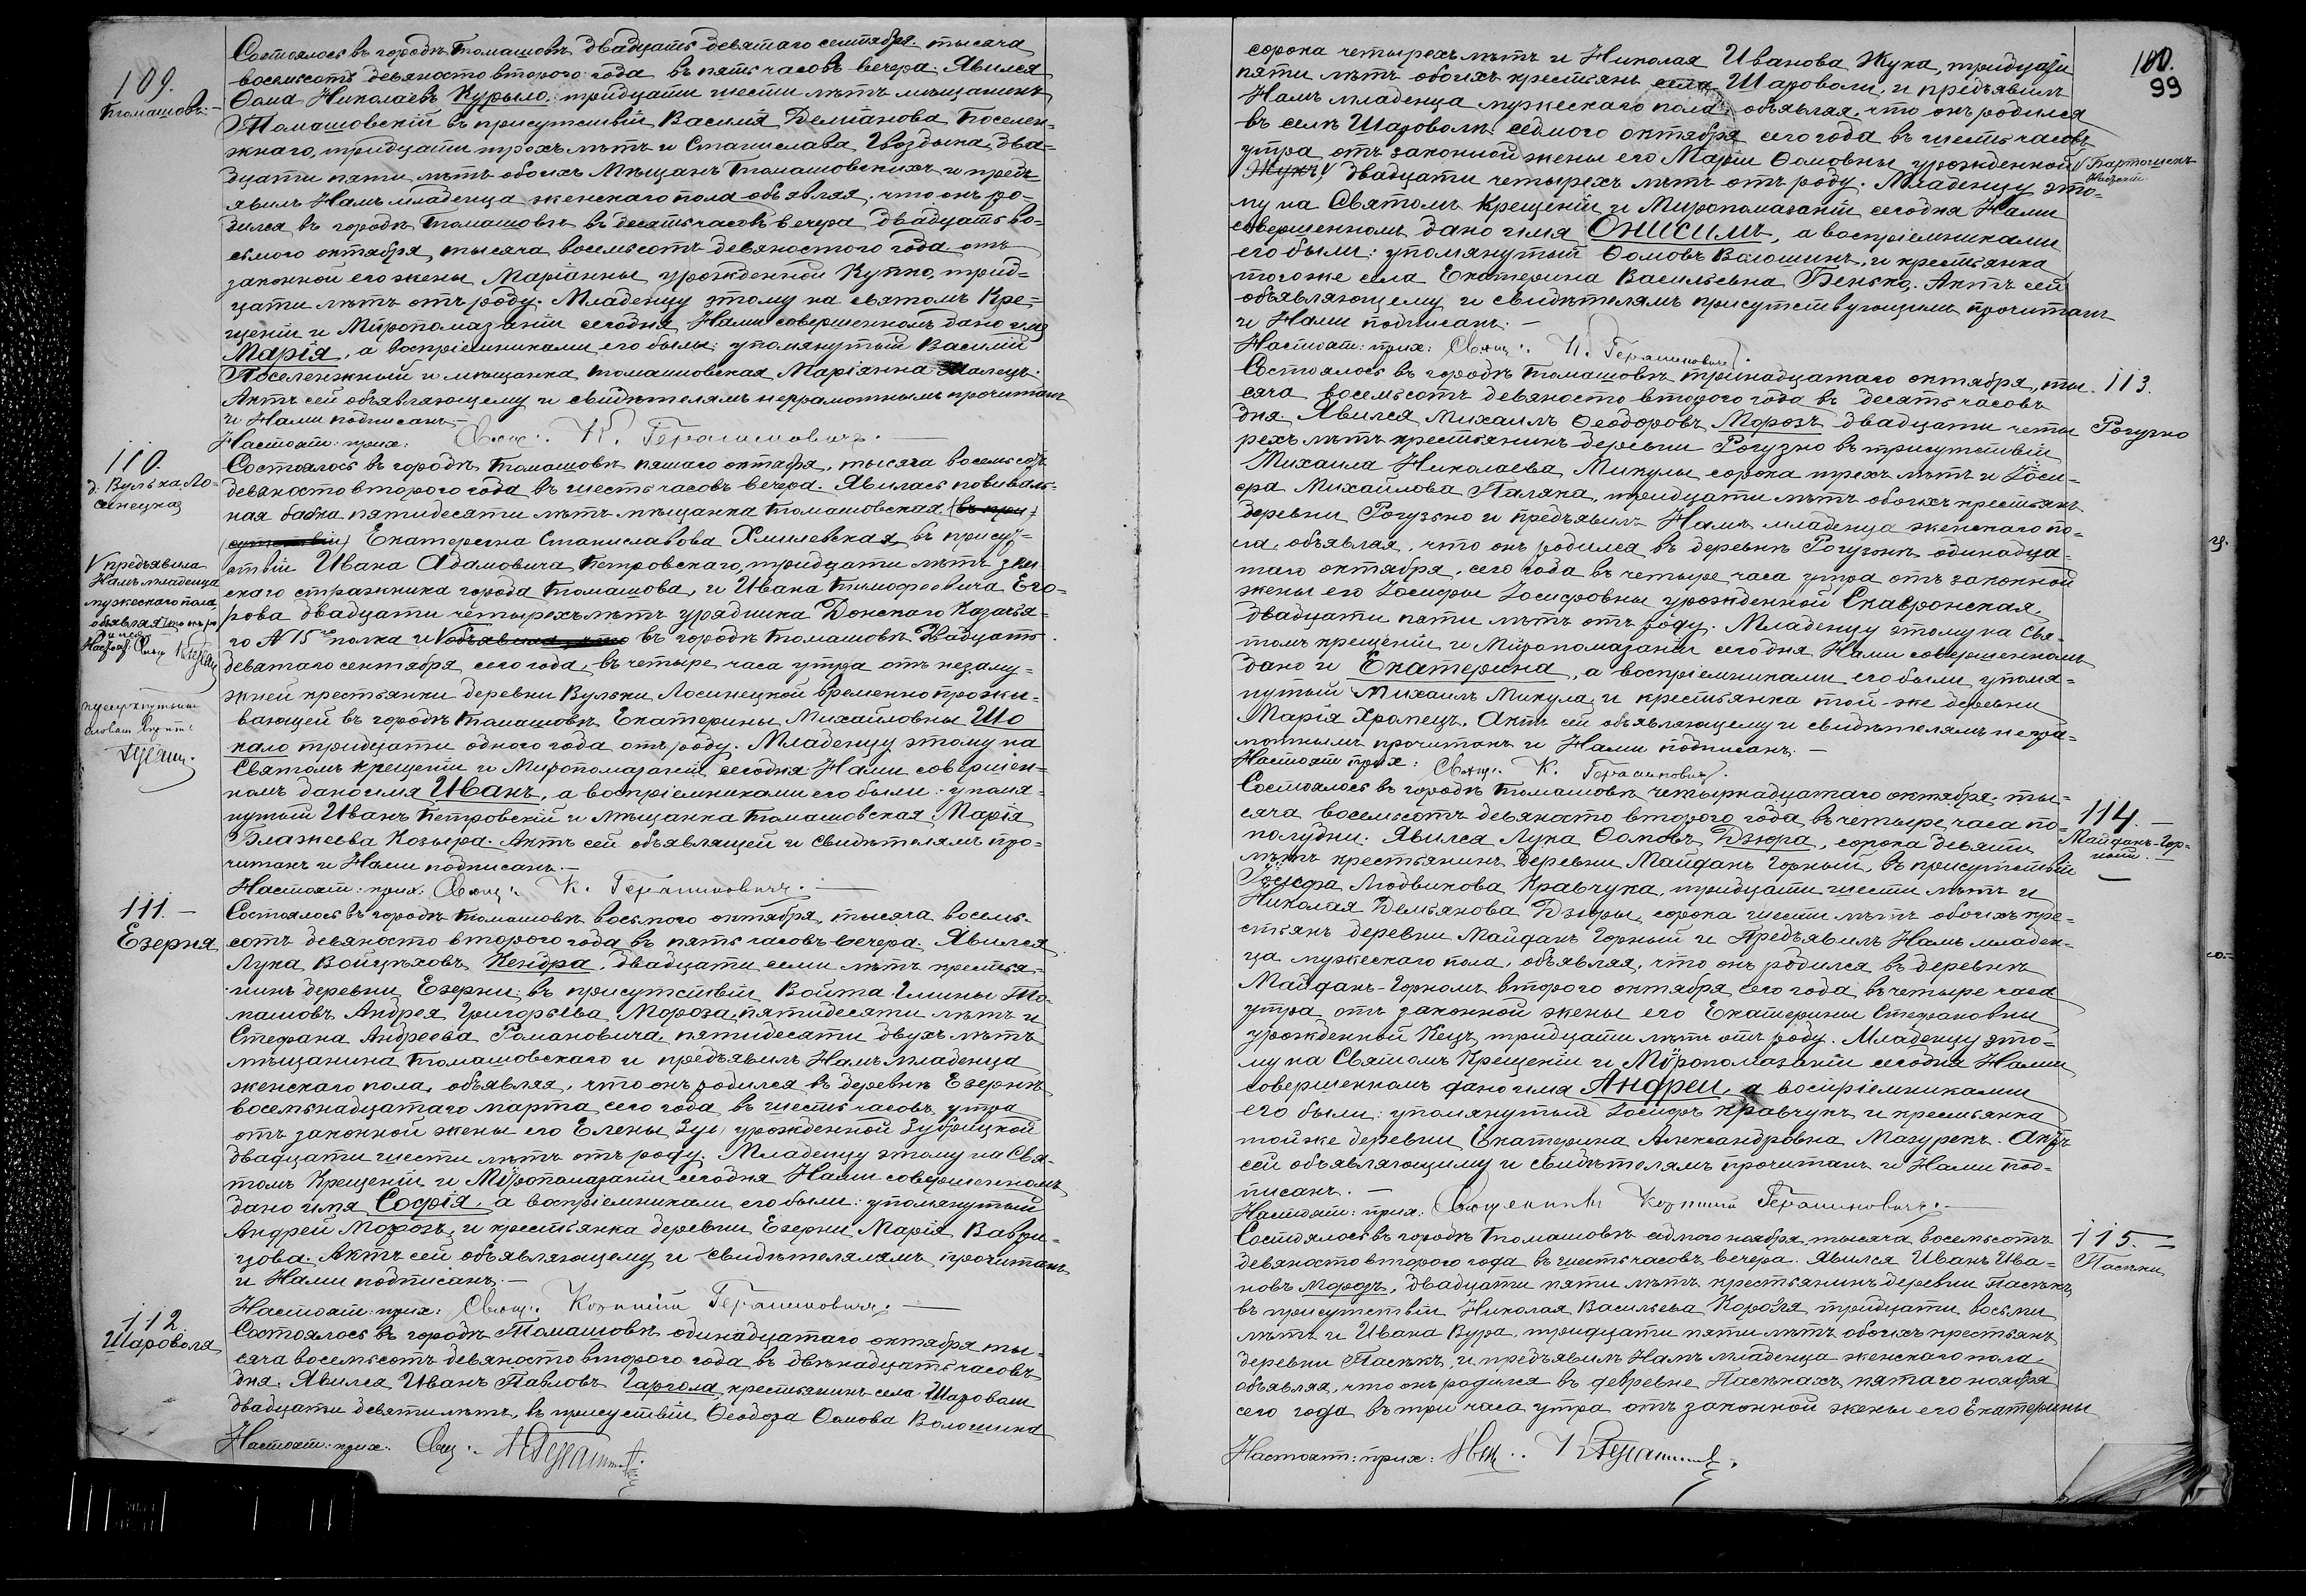 109.
Томашовъ.
Состоялось въ городѣ Томашовѣ двадцать девятаго сентября тысяча
восемьсотъ девяносто второго года въ пять часовъ вечера. Явился
Ѳома Николаевъ Курыло, тридцати шести лѣтъ мѣщанинъ
Томашовскій въ присутствіи Василія Деміанова Поселен-
жнаго, тридцати трехъ лѣтъ и Станислава Гвоздыка, два-
дцати пяти лѣтъ обоихъ Мѣщанъ Томашовскихъ и предъ-
явилъ Намъ младенца женскаго пола объявляя, что онъ ро-
дился въ городѣ Томашовѣ въ десять часовъ вечера двадцать во-
сьмого октября, тысяча восемьсотъ девяностого года отъ
законной его жены Маріанны урожденной Купко, трид-
цати лѣтъ отъ роду. Младенцу этому на святомъ Кре-
щеніи и Мѵропомазаніи сегодня Нами совершенномъ дано имя
Марія, а воспріемниками его были: упомянутый Василій
Поселенжный и мѣщанка томашовская Маріанна Малецъ.
Актъ сей объявляющему и свидѣтелямъ неграмотнымъ прочитанъ
и Нами подписанъ.—
Настоят: прих: Свящ: К. Герасимовичъ.
110.
д. Вулька Ло-
синецкая
Состоялось въ городѣ Томашовѣ пятаго октября, тысяча восемьсотъ
девяносто второго года въ шесть часовъ вечера. Явилась повиваль-
ная бабка пятидесяти лѣтъ мѣщанка томашовская (въ при-
сутствіи) Екатерина Станиславова Хмилевская, въ присут-
V предъявила
Намъ младенца
мужескаго пола,
объявляя что онъ ро
дился
ствіи Ивана Адамовича Петровскаго, тридцати лѣтъ зем
скаго стражника города Томашова, и Ивана Тимофеевича Его-
рова двадцати четырехъ лѣтъ урядника Донскаго Казачья-
го № 15 полка и V объявляя, что въ городѣ Томашовѣ двадцать
девятаго сентября сего года, въ четыре часа утра отъ незаму-
жней крестьянки деревни Вульки Лосинецкой временно прожи-
вающей въ городѣ Томашовѣ Екатерины Михайловны Шо
кало тридцати одного года отъ роду. Младенцу этому на
Святомъ крещеніи и Миропомазаніи сегодня Нами совершен-
номъ дано имя Иванъ, а воспріемниками его были: упомя-
нутый Иванъ Петровскій и мѣщанка Томашовская Марія
Блажеева Козыра. Актъ сей объявлящей и свидѣтелямъ про-
читанъ и Нами подписанъ.—
Настоят: прих: Свящ: К. Герасимовичъ.—
111.—
Езерня
Состоялось въ городѣ Томашовѣ восьмого октября, тысяча восемь-
сотъ девяносто второго года въ пять часовъ вечера. Явился
Лука Войцѣховъ Кендра, двадцати семи лѣтъ крестья-
нинъ деревни Езерни; въ присутствіи Войта Гмины То-
машовъ Андрея Григорьева Мороза, пятидесяти лѣтъ и
Стефана Андреева Романовича, пятидесяти двухъ лѣтъ
мѣщанина Томашовскаго и предъявилъ Намъ младенца
женскаго пола, объявляя, что онъ родился въ деревнѣ Езернѣ
восемьнадцатаго марта сего года въ шесть часовъ утра
отъ законной жены его Елены Зуб урожденной Зубрицкой
двадцати шести лѣтъ отъ роду. Младенцу этому на Свя-
томъ Крещеніи и Мѵропомазаніи сегодня Нами совершенномъ
дано имя Софія, а воспріемниками его были: упомянутый
Андрей Морозъ, и крестьянка деревни Езерни Марія Ваври-
цова. Актъ сей объявляющему и свидѣтелямъ прочитанъ
и Нами подписанъ.—
Настоят: прих: Свящ: Корнилій Герасимовичъ.—
112.
Шароволя
Состоялось въ городѣ Томашовѣ одинадцатаго октября ты-
сяча восемьсотъ девяносто второго года въ двѣнадцать часовъ
дня. Явился Иванъ Павловъ Гаргола, крестьянинъ села Шароволи
двадцати девяти лѣтъ, въ присутствіи Ѳеодора Ѳомова Волошина
Настоят: прих: Свящ:
100.
99
сорока четырехъ лѣтъ и Николая Иванова Жука, тридцати
пяти лѣтъ обоихъ крестьянъ села Шароволи, и предъявилъ
Намъ младенца мужескаго пола, объявляя, что онъ родился
въ селѣ Шароволи седмого октября сего года въ шесть часовъ
утра отъ законной жены его Маріи Ѳомовны урожденной V Бартошекъ
Жукъ V двадцати четырехъ лѣтъ отъ роду. Младенцу это-
му на Святомъ Крещеніи и Миропомазаніи сегодня Нами
совершенномъ дано имя Онисимъ, а воспріемниками
его были: упомянутый Ѳомовъ Волошинъ, и крестьянка
тогоже села Екатерина Васильевна Бенько. Актъ сей
объявляющему и свидѣтелямъ присутствующимъ прочитанъ
и Нами подписанъ.—
Настоят: прих: Свящ: К. Герасимовичъ.
113.
Рогузно
Состоялось въ городѣ Томашовѣ тринадцатаго октября, ты-
сяча восемьсотъ девяносто второго года въ десять часовъ
дня. Явился Михаилъ Ѳеодоровъ Морозъ двадцати четы
рехъ лѣтъ крестьянинъ деревни Рогузно въ присутствіи
Михаила Николаева Микулы сорока трехъ лѣтъ и Іоси-
фа Михайлова Паляка, тридцати лѣтъ обоихъ крестьянъ
деревни Рогузно и предъявилъ Намъ младенца женскаго по-
ла, объявляя, что онъ родился въ деревнѣ Рогузнѣ одинадца-
таго октября, сего года въ четыре часа утра отъ законной
жены его Іосифы Іосифовны урожденной Скавронская,
двадцати пяти лѣтъ отъ роду. Младенцу этому на Свя-
томъ крещеніи и Мѵропомазаніи сегодня Нами совершенномъ
дано и Екатерина, а воспріемниками его были упомя-
нутый Михаилъ Микула, и крестьянка той-же деревни
Марія Храпецъ. Актъ сей объявляющему и свидѣтелямъ негра-
мотнымъ прочитанъ и Нами подписанъ.—
Настоят: прих: Свящ: К. Герасимовичъ.
114.—
Майданъ-Гор-
ный.
Состоялось въ городѣ Томашовѣ четырнадцатаго октября, ты-
сяча восемьсотъ девяносто второго года въ четыре часа по-
полудни. Явился Лука Ѳомовъ Дзюра, сорока девяти
лѣтъ крестьянинъ деревни Майданъ Горный, въ присутствіи
Іосифа Людвикова Кравчука, тридцати шести лѣтъ и
Николая Демьянова Дзюры, сорока шести лѣтъ обоихъ кре-
стьянъ деревни Майданъ Горный и Предъявилъ Намъ младен-
ца мужескаго пола, объявляя, что онъ родился въ деревнѣ
Майданъ-Горномъ второго октября сего года въ четыре часа
утра отъ законной жены его Екатерины Стефановны
урожденной Кецъ, тридцати лѣтъ отъ роду. Младенцу это-
му на Святомъ Крещеніи и Мѵропомазаніи сегодня Нами
совершенномъ дано имя Андрей, а воспріемниками
его были: упомянутый Іосифъ Кравчукъ и крестьянка
тойже деревни Екатерина Александровна Мазурекъ. Актъ
сей объявляющиму и свидѣтелямъ прочитанъ и Нами под-
писанъ.—
Настоят: прих: Священникъ Корнилій Герасимовичъ.—
115.—
Пасѣки
Состоялось въ городѣ Томашовѣ седмого ноября тысяча восемьсотъ
девяносто второго года въ шесть часовъ вечера. Явился Иванъ Ива-
новъ Морозъ, двадцати пяти лѣтъ крестьянинъ деревни Пасѣкъ,
въ присутствіи Николая Васильева Короля тридцати восьми
лѣтъ и Ивана Вура, тридцати пяти лѣтъ обоихъ крестьянъ
деревни Пасѣкъ, и предъявилъ Намъ младенца женскаго пола
объявляя, что онъ родился въ деревне Пасѣкахъ пятаго ноября
сего года въ три часа утра отъ законной жены его Екатерины
Настоят: прих: Свящ: